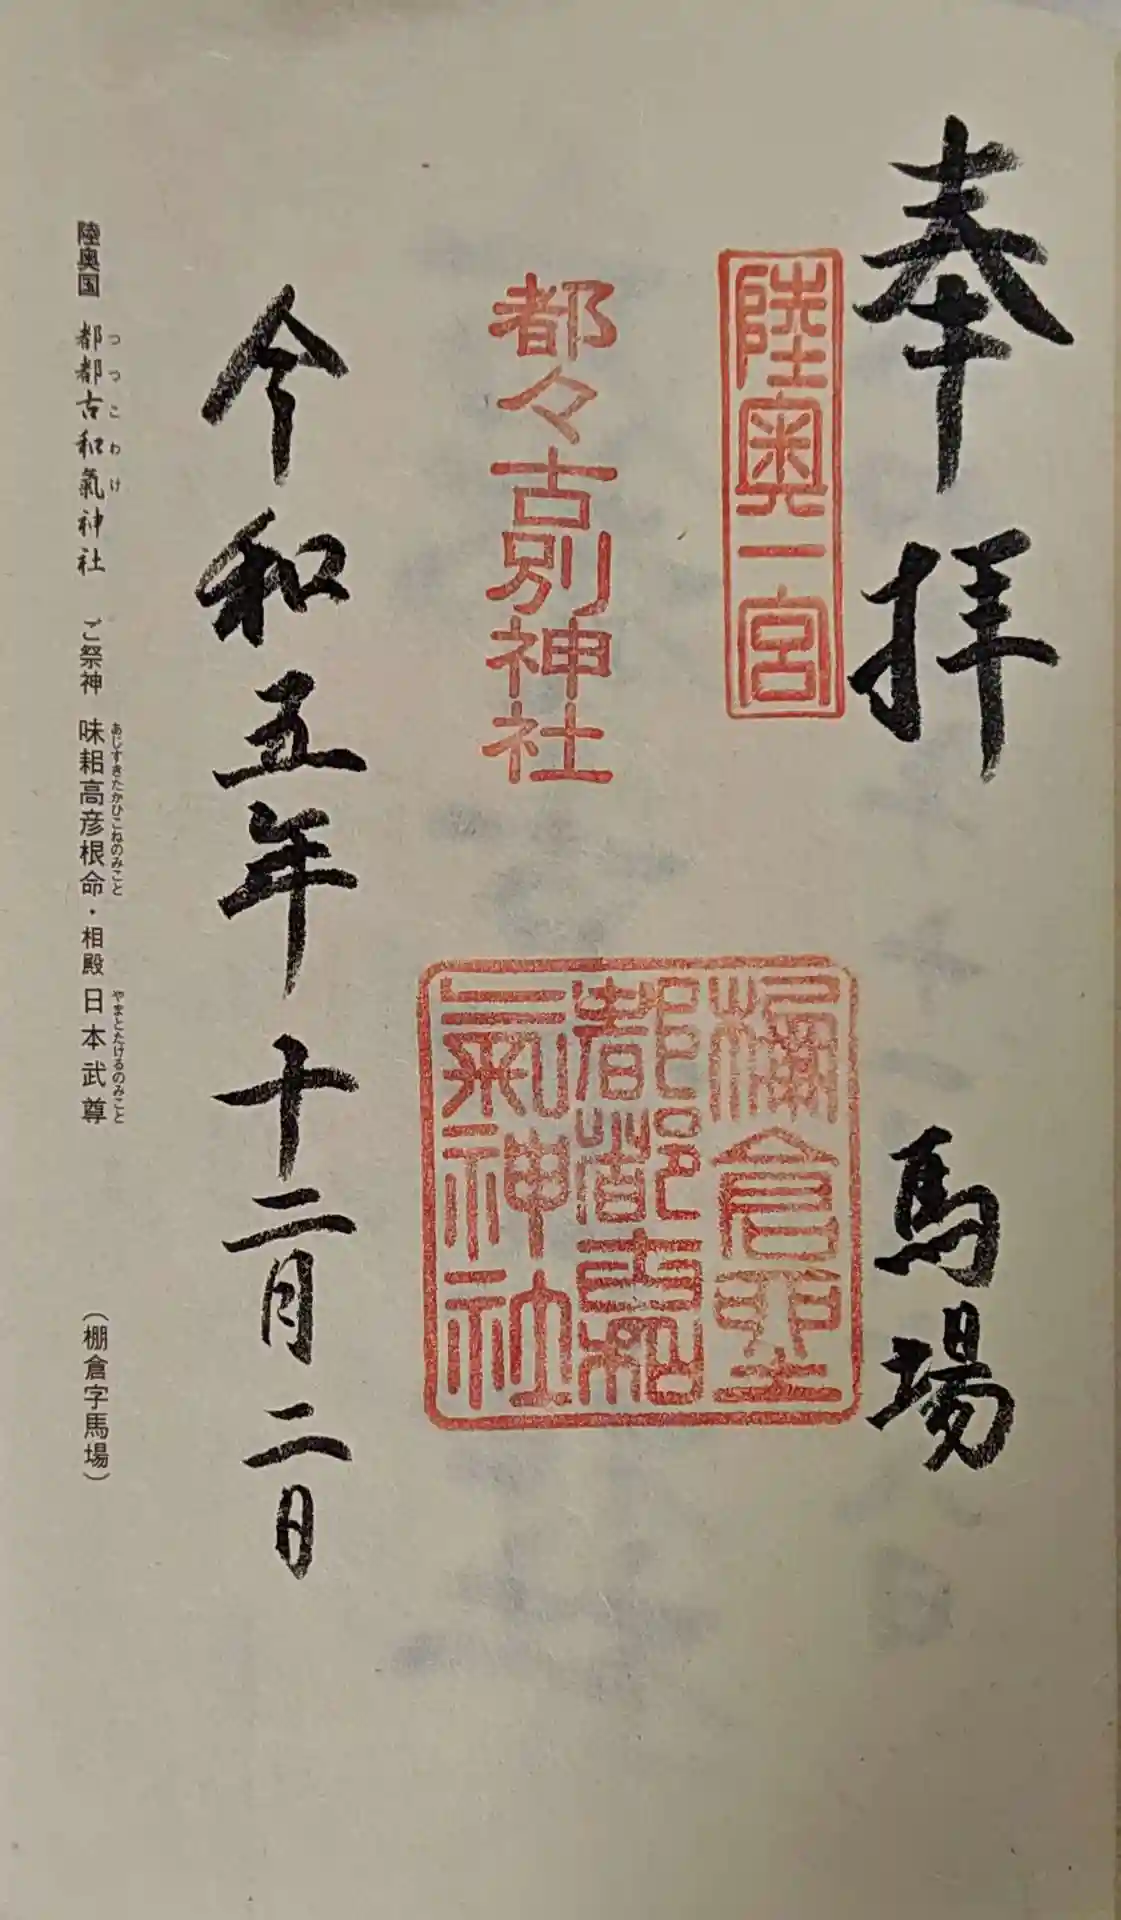 奉拝 馬場
陸奥一宮
都々古別神社
棚倉
都都古和
氣神社
令和五年十二月二日
つつこわけ あじすきたかひこねのみこと やまとたけるのみこと
陸奥国 都都古和氣神社 ご祭神 味耜高彦根命・相殿 日本武尊 （棚倉字馬場）